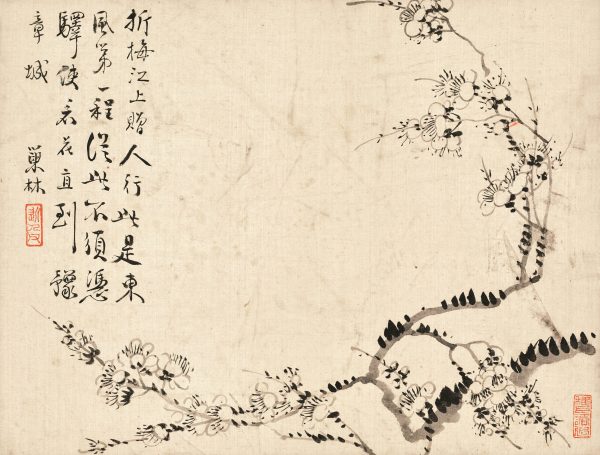 折梅江上贈人行此是東
風第一程從此不須憑
驛使看花直到豫
章城
巢林